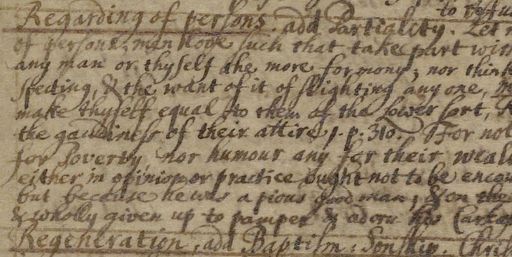 to refuse
Regarding of persons. add Partiality. Let n
of persons, man look such that take part with
any man or thyself the more for mony; nor think
specting, & the want of it of slighting any one,
make thyself equal to them of the lower sort,
the gaudiness of their attire, 1. p. 310. For not
for Poverty, nor humour any for their weal
either in opinion or practice ought not to be encou
but because he was a pious good man; & on the
& wholly given up to pamper & adorn his Carcas
Regeneration, add Baptism; Sonship. Chris